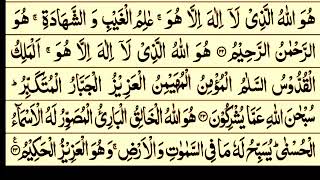 هُوَ اللّٰهُ الَّذِیْ لَاۤ اِلٰهَ اِلَّا هُوَ ۚ عٰلِمُ الْغَیْبِ وَ الشَّهَادَةِ ۚ هُوَ
الرَّحْمٰنُ الرَّحِیْمُ ﴿۲۲﴾ هُوَ اللّٰهُ الَّذِیْ لَاۤ اِلٰهَ اِلَّا هُوَ ۚ اَلْمَلِكُ
الْقُدُّوْسُ السَّلٰمُ الْمُؤْمِنُ الْمُهَیْمِنُ الْعَزِیْزُ الْجَبَّارُ الْمُتَكَبِّرُ ؕ
سُبْحٰنَ اللّٰهِ عَمَّا یُشْرِكُوْنَ ﴿۲۳﴾ هُوَ اللّٰهُ الْخَالِقُ الْبَارِئُ الْمُصَوِّرُ لَهُ الْاَسْمَآءُ
الْحُسْنٰی ؕ یُسَبِّحُ لَهٗ مَا فِی السَّمٰوٰتِ وَ الْاَرْضِ ۚ وَ هُوَ الْعَزِیْزُ الْحَكِیْمُ ﴿۲۴﴾